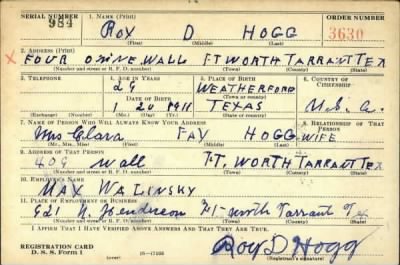 SERIAL NUMBER
984
1. NAME (Print)
ORDER NUMBER
ROY D HOGG
3630
(First) (Middle) (Last)
2. ADDRESS (Print)
X FOUR O NINE WALL FT WORTH TARRANT TEX
(Number and street or R. F. D. number) (Town) (County) (State)
3. TELEPHONE
4. AGE IN YEARS
5. PLACE OF BIRTH
6. COUNTRY OF CITIZENSHIP
29
WEATHERFORD
DATE OF BIRTH
(Town or county)
1 20 1911
TEXAS
U.S.A.
(Exchange) (Number)
(Mo.) (Day) (Yr.)
(State or country)
7. NAME OF PERSON WHO WILL ALWAYS KNOW YOUR ADDRESS
8. RELATIONSHIP OF THAT PERSON
Mrs Clara FAY HOGG WIFE
(Mr., Mrs., Miss) (First) (Middle) (Last)
9. ADDRESS OF THAT PERSON
409 Wall FT. WORTH TARRANT TEX
(Number and street or R. F. D. number) (Town) (County) (State)
10. EMPLOYER'S NAME
MAX WALINSKY
11. PLACE OF EMPLOYMENT OR BUSINESS
921 N. Henderson Ft worth Tarrant Tx
(Number and street or R. F. D. number) (Town) (County) (State)
I AFFIRM THAT I HAVE VERIFIED ABOVE ANSWERS AND THAT THEY ARE TRUE.
REGISTRATION CARD
D. S. S. Form 1
16—17105
Roy D Hogg